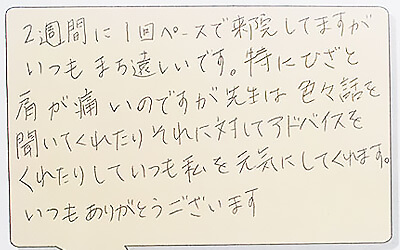 2週間に1回ペースで来院してますが
いつもまち遠しいです。特にひざと
肩が痛いのですが先生は色々話を
聞いてくれたりそれに対してアドバイスを
くれたりしていつも私を元気にしてくれます。
いつもありがとうございます